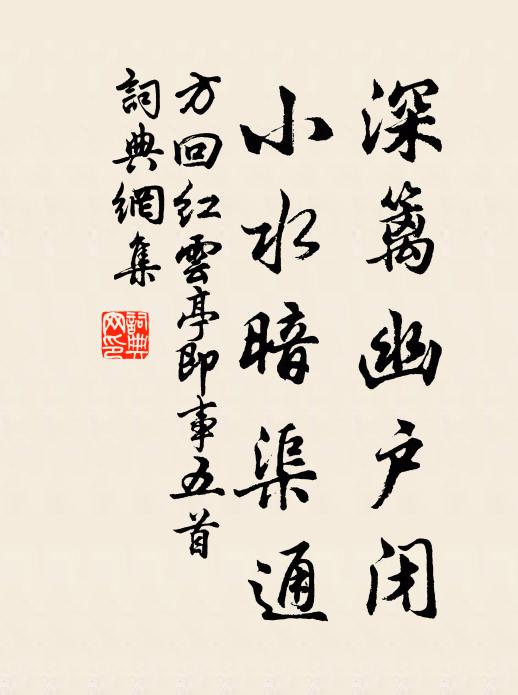 深篱幽户闭
小水暗渠通
方回红雲亭即事五首
詞典網集
詞典网印